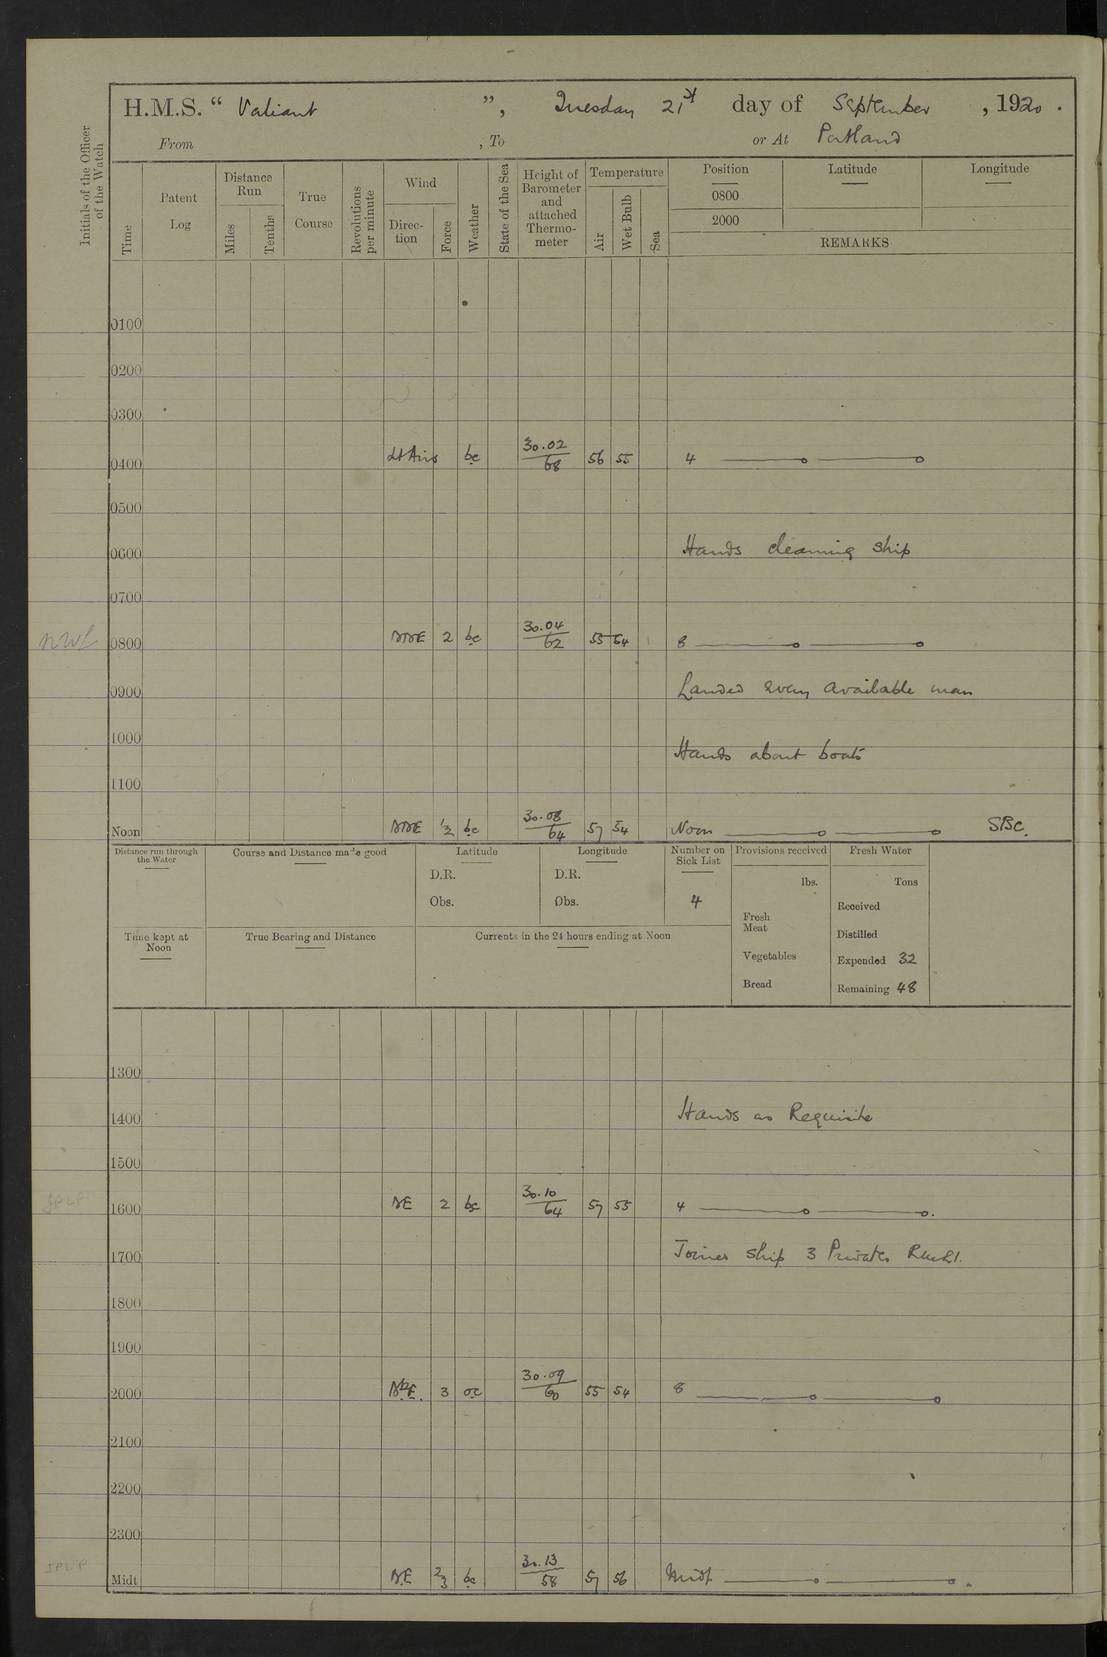 H.M.S. “ Valiant ”, Tuesday 21st day of September , 1920 .
From , To or At Portland
Initials of the Officer of the Watch
Time
Patent Log
Distance Run
Miles
Tenths
True Course
Revolutions per minute
Wind
Direction
Force
Weather
State of the Sea
Height of Barometer and attached Thermometer
Temperature
Air
Wet Bulb
Sea
Position Latitude Longitude
0800
2000
REMARKS
0100
0200
0300
0400 Lt Airs bc 30.02/68 56 55 4
0500
0600 Hands cleaning ship
0700
0800 NNE 2 bc 30.04/62 55 54 8
0900 Landed every available man
1000 Hands about boats
1100
Noon NNE 1/2 bc 30.08/64 57 54 Noon SBC.
Distance run through the Water
Course and Distance made good
Latitude
D.R.
Obs.
Longitude
D.R.
Obs.
Number on Sick List
4
Provisions received
lbs.
Fresh Meat
Vegetables
Bread
Fresh Water
Tons
Received
Distilled
Expended 32
Remaining 48
Time kept at Noon
True Bearing and Distance
Currents in the 24 hours ending at Noon
1300
1400 Hands as Requisite
1500
1600 NE 2 bc 30.10/64 57 55 4
1700 Joined ship 3 Privates
1800
1900
2000 NbE. 3 oc 30.09/60 55 54 8
2100
2200
2300
Midt NE 2/3 bc 30.13/58 57 56 Midt.